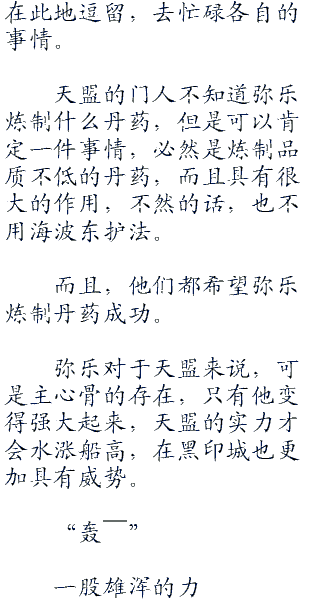 在此地逗留，去忙碌各自的
事情。
天盟的门人不知道弥乐
炼制什么丹药，但是可以肯
定一件事情，必然是炼制品
质不低的丹药，而且具有很
大的作用，不然的话，也不
用海波东护法。
而且，他们都希望弥乐
炼制丹药成功。
弥乐对于天盟来说，可
是主心骨的存在，只有他变
得强大起来，天盟的实力才
会水涨船高，在黑印城也更
加具有威势。
“轰——”
一股雄浑的力